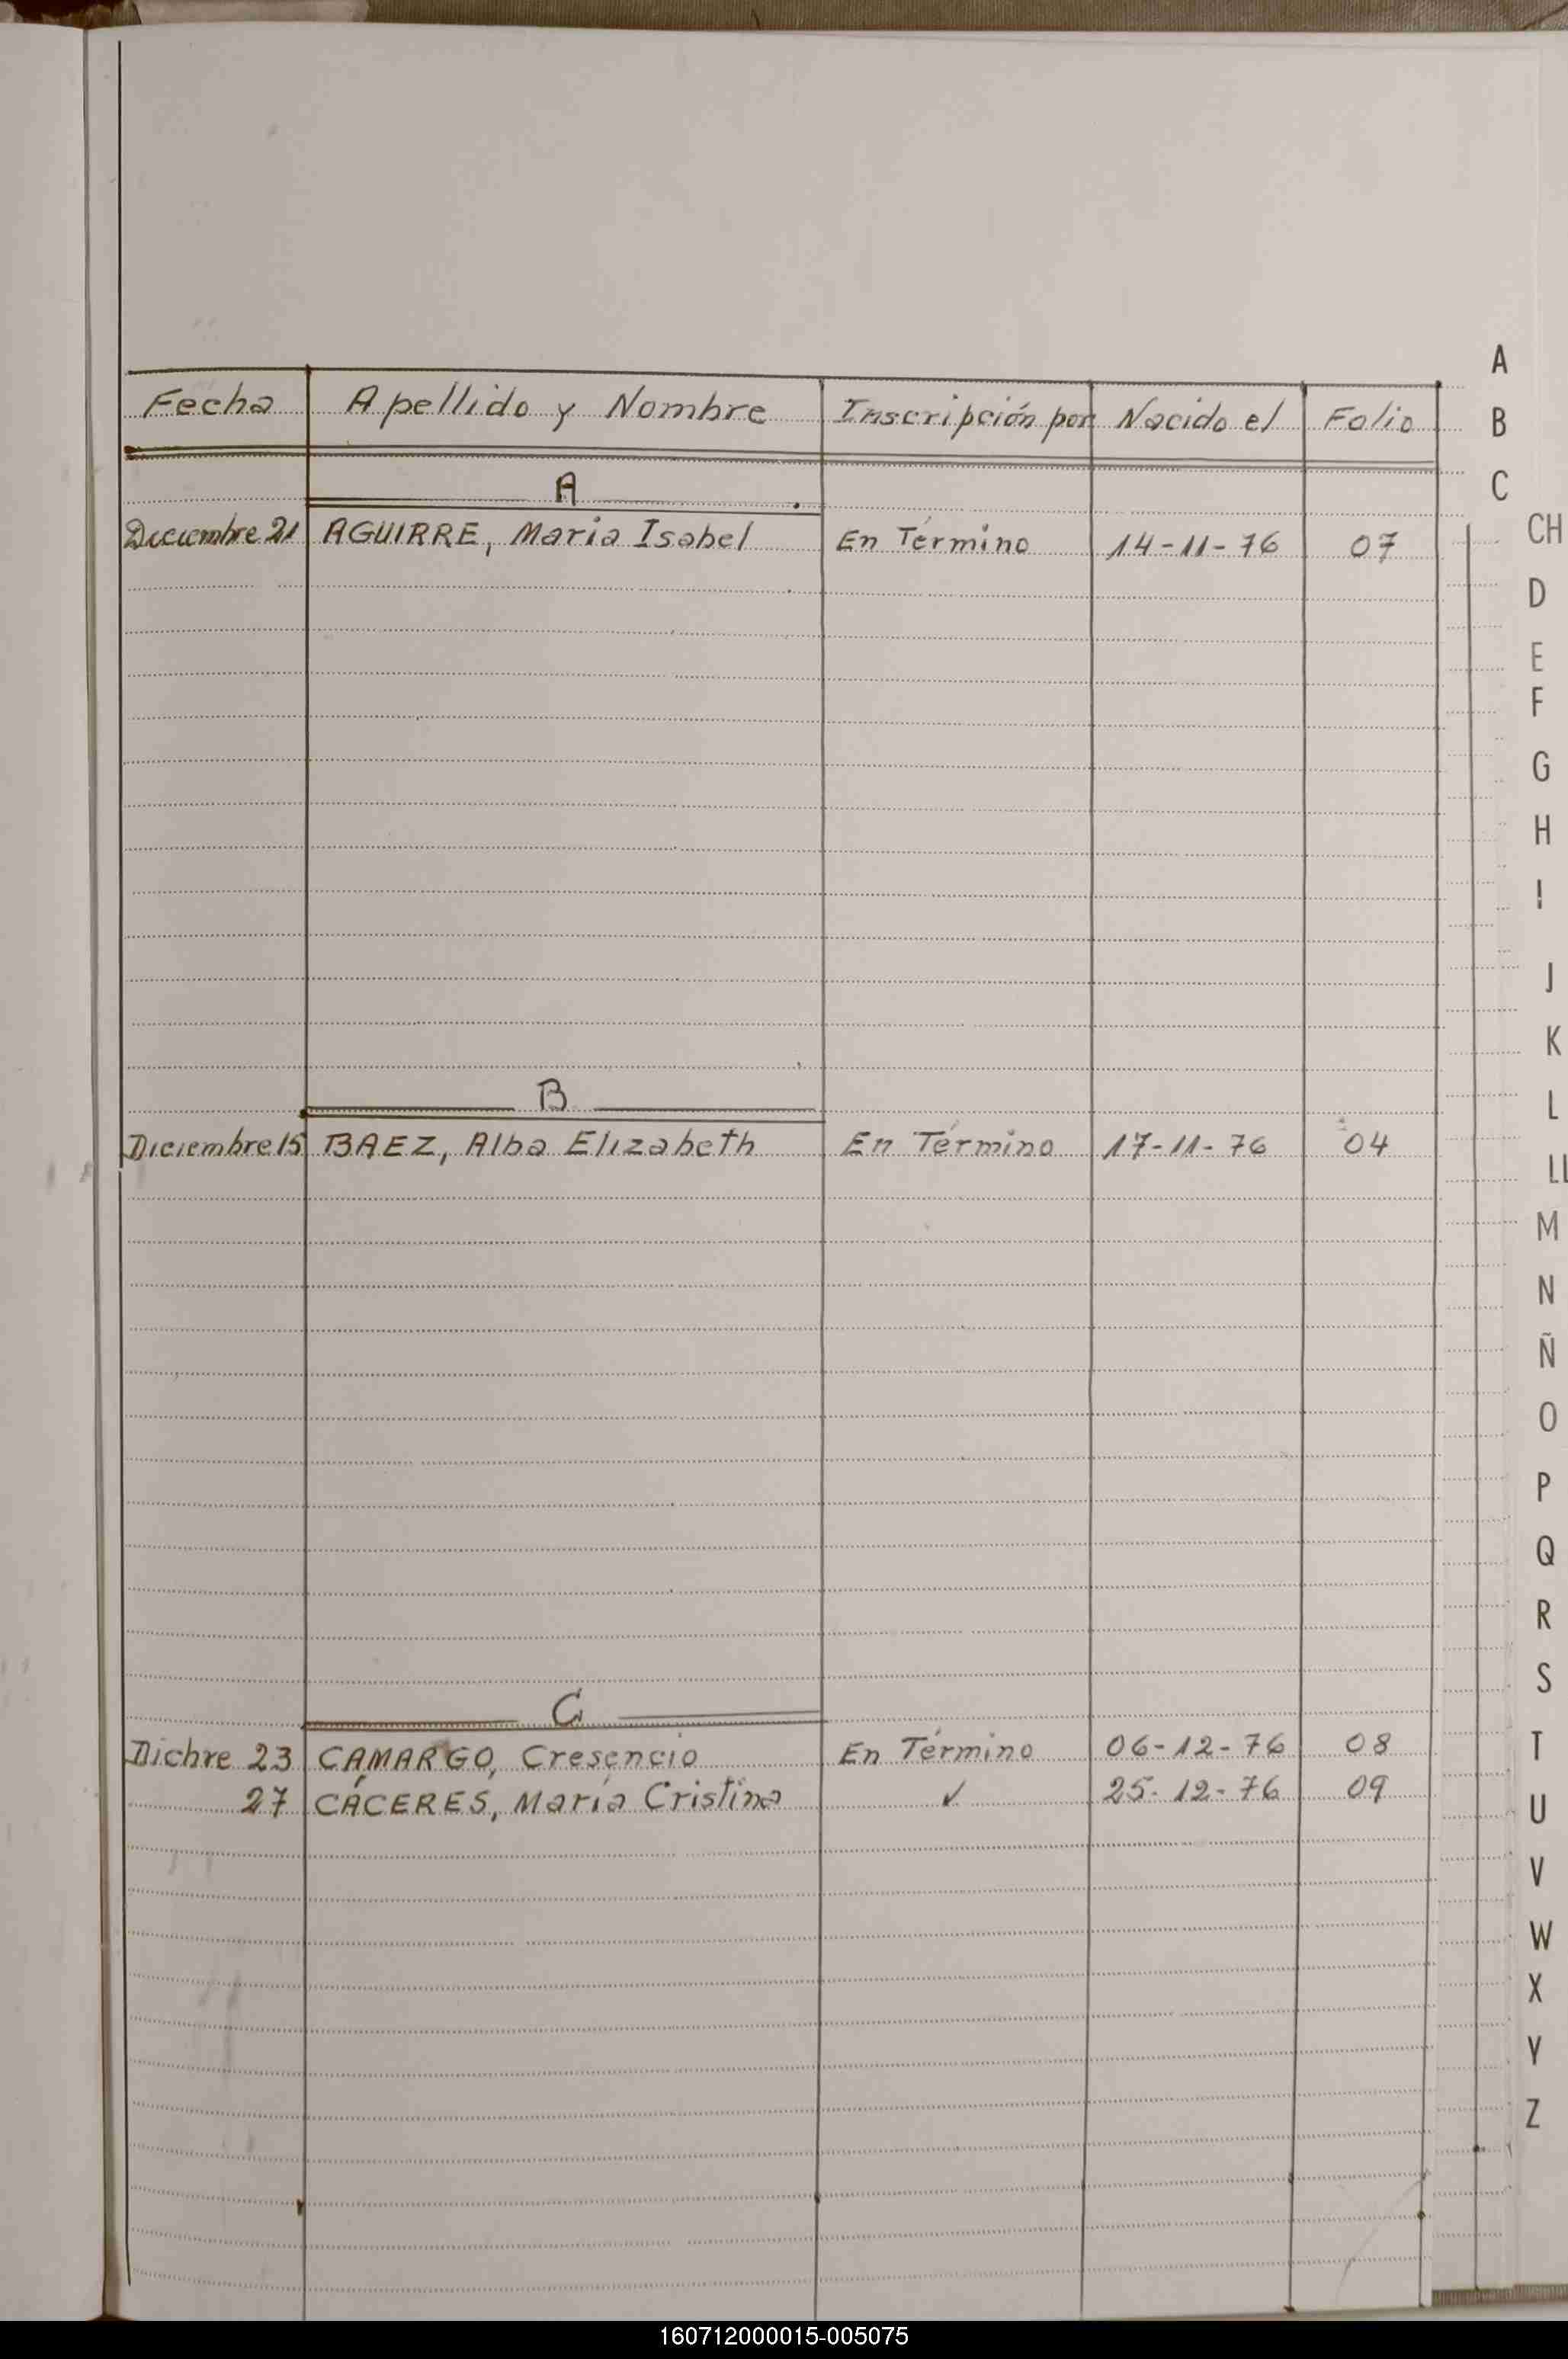 Fecha Apellido y Nombre Inscripción por Nacido el Folio
A
Diciembre 21 AGUIRRE, Maria Isabel En Término 14-11-76 07
B
Diciembre 15 BAEZ, Alba Elizabeth En Término 17-11-76 04
C
Dicbre 23 CAMARGO, Cresencio En Término 06-12-76 08
27 CÁCERES, María Cristina ✓ 25-12-76 09
A
B
C
CH
D
E
F
G
H
I
J
K
L
LL
M
N
Ñ
O
P
Q
R
S
T
U
V
W
X
Y
Z
160712000015-005075